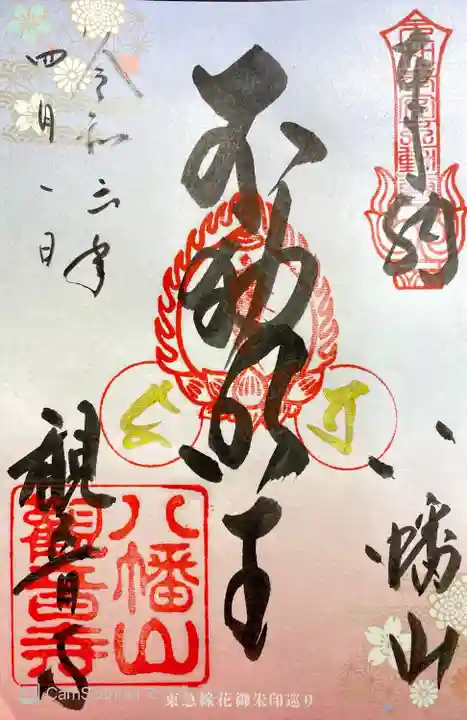 奉納
八幡山
不動明王
令和六年
四月一日
観音寺
八幡山
觀音寺
東急線花御朱印巡り
CamScanner